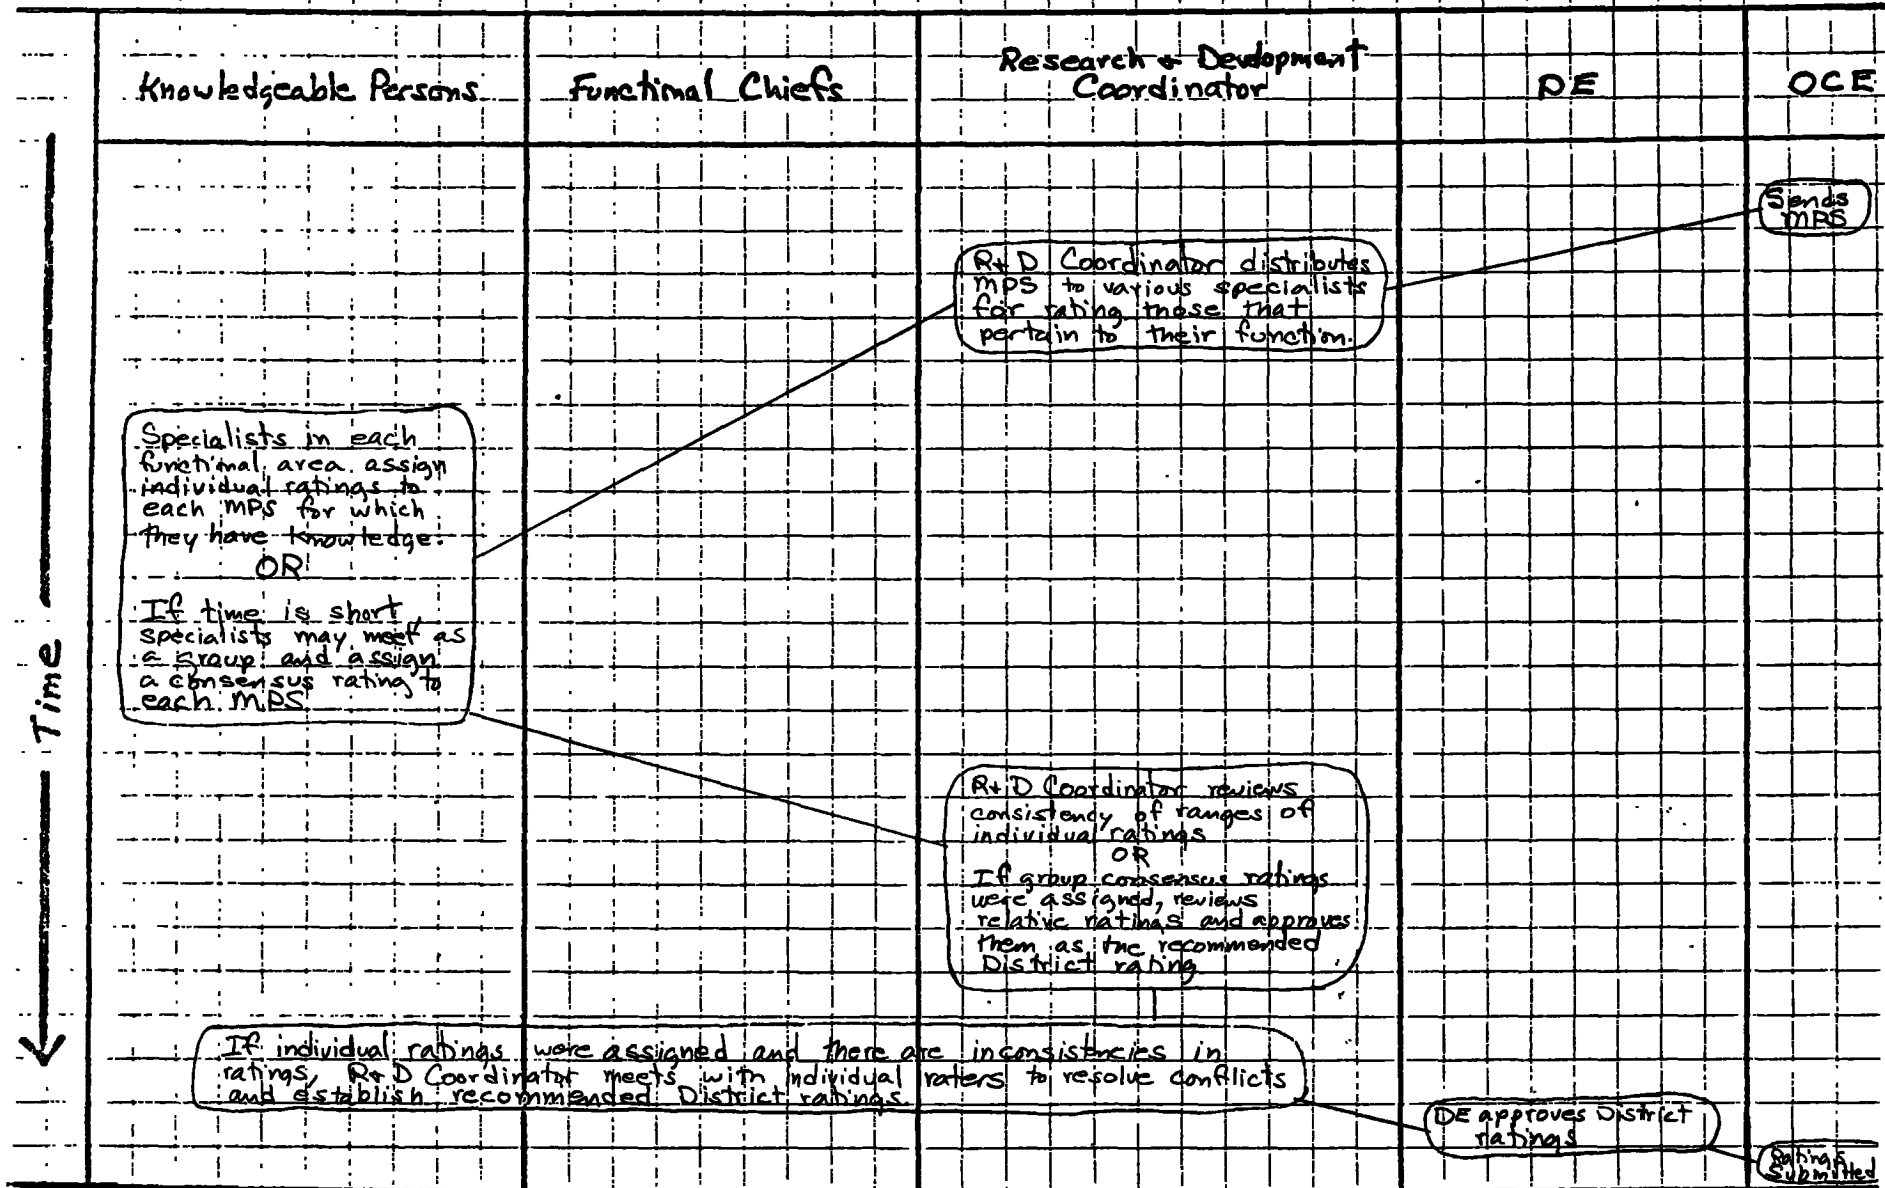 Knowledgeable Persons
Functional Chiefs
Research & Development
Coordinator
DE
OCE
Time
Sends
MPS
R&D Coordinator distributes
MPS to various specialists
for rating those that
pertain to their function.
Specialists in each
functional area assign
individual ratings to
each MPS for which
they have knowledge.
OR
If time is short,
specialists may meet as
a group and assign
a consensus rating to
each MPS
R&D Coordinator reviews
consistency of ranges of
individual ratings
OR
If group consensus ratings
were assigned, reviews
relative ratings and approves
them as the recommended
District rating
If individual ratings were assigned and there are inconsistencies in
ratings, R&D Coordinator meets with individual raters to resolve conflicts
and establish recommended District ratings.
DE approves District
ratings
Ratings
Submitted